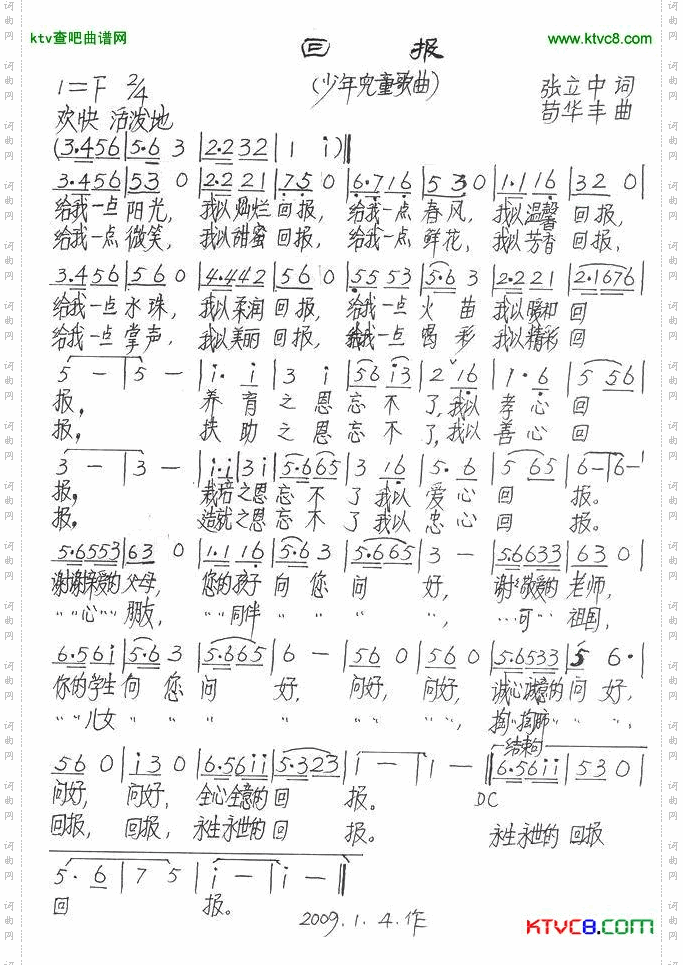 ktv查吧曲谱网
www.ktvc8.com
回 报
(少年儿童歌曲)
1=F 2/4
张立中 词
苟华丰 曲
欢快 活泼地
(3·456|5·6 3|2·232|1 i)||
3·456|53 0|2·2 21|75 0|6·716|530|1·116|32 0|
给我一点 阳光, 我以灿烂 回报, 给我一点 春风, 我以温馨 回报,
给我一点 微笑, 我以甜蜜 回报, 给我一点 鲜花, 我以芳香 回报,
3·456|56 0|4·442|56 0|55 53|5·6 3|2·221|2·1676|
给我一点 水珠, 我以柔润 回报, 给我一点 火苗 我以暖和 回
给我一点 掌声, 我以美丽 回报, 给我一点 喝彩 我以精彩 回
5 —|5 —|i· i|3 i|56 i3|2 ˇ16|1·6|5 56|
报, 养育之恩忘不了,我以孝心回
报, 扶助之恩忘不了,我以善心回
3 —|3 —|i·i|3i|5·665|3 16|5·6|5 65|6—|6—|
报, 栽培之恩忘不了 我以 爱心 回 报。
报, 造就之恩忘不了 我以 忠心 回 报。
5·6553|63 0|1·1 16|5·63|5·665|3 —|5·6633|63 0|
谢谢亲爱的 父母, 您的孩子 向您 问 好, 谢谢敬爱的 老师,
〃〃心〃 朋友, 〃〃同伴 〃 〃 〃 〃, …可〃 祖国,
6·56i|5·6 3|5·665|6 —|56 0|56 0|5·6533|5 6·|
你的学生 向 您 问 好, 问好, 问好, 诚心诚意的 问 好,
〃〃儿女 〃 〃 〃 〃, 〃〃, 〃〃,
结束句
56 0|i3 0|6·56ii|5·323|i —|1 —||6·56ii|53 0|
问好, 问好, 全心全意的 回 报。 DC
回报, 回报, 永生永世的 回 报。 永生永世的 回报
5· 6|7 5|i —|i —||
回 报。
2009.1.4.作
KTVC8.com
词曲网